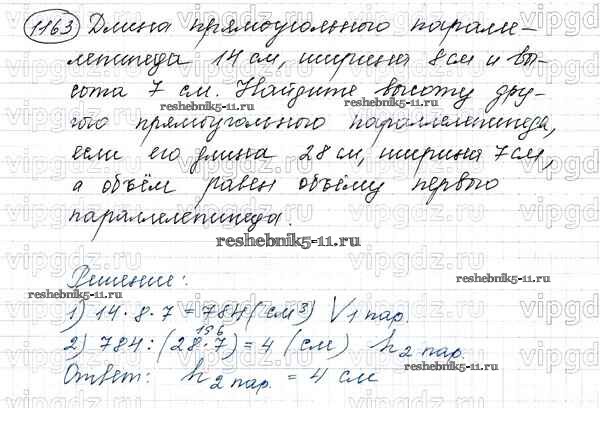 1163 Длина прямоугольного паралле-
лепипеда 14 см, ширина 8 см и вы-
сота 7 см. Найдите высоту дру-
гого прямоугольного параллелепипеда,
если его длина 28 см, ширина 7 см,
а объём равен объёму первого
параллелепипеда.
Решение:
1) 14 · 8 · 7 = 784 (см³) V1 пар.
196
2) 784 : (28 · 7) = 4 (см) h2 пар.
Ответ: h2 пар. = 4 см
reshebnik5-11.ru
reshebnik5-11.ru
reshebnik5-11.ru
reshebnik5-11.ru
reshebnik5-11.ru
vipgdz